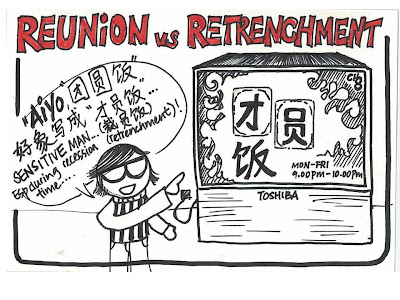 REUNION VS RETRENCHMENT
"Aiyo. 团圆饭"
好象写成"才员饭"...
SENSITIVE MAN... (裁员饭)
Esp during recession (retrenchment)!
time....
Ch 8
才员
饭
MON-FRI
9.00PM-10.00PM
TOSHIBA